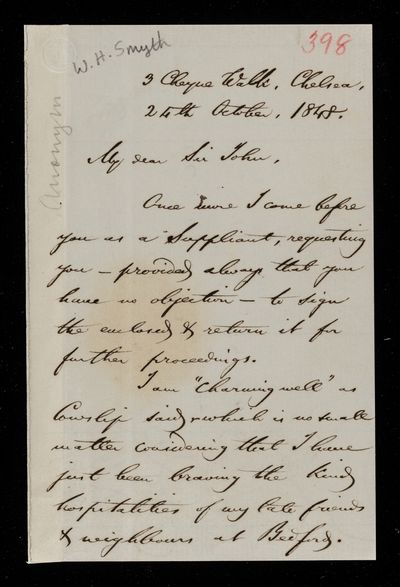 W. H. Smyth
398
Anonym
3 Cheyne Walk, Chelsea,
24th October, 1848.
My dear Sir John,
Once more I come before
you as a Suppliant, requesting
you – provided always that you
have no objection – to sign
the enclosed & return it for
further proceedings.
I am "charming well" as
Cowslip said, which is no small
matter considering that I have
just been braving the kind
hospitalities of my late friends
& neighbours at Bedford.